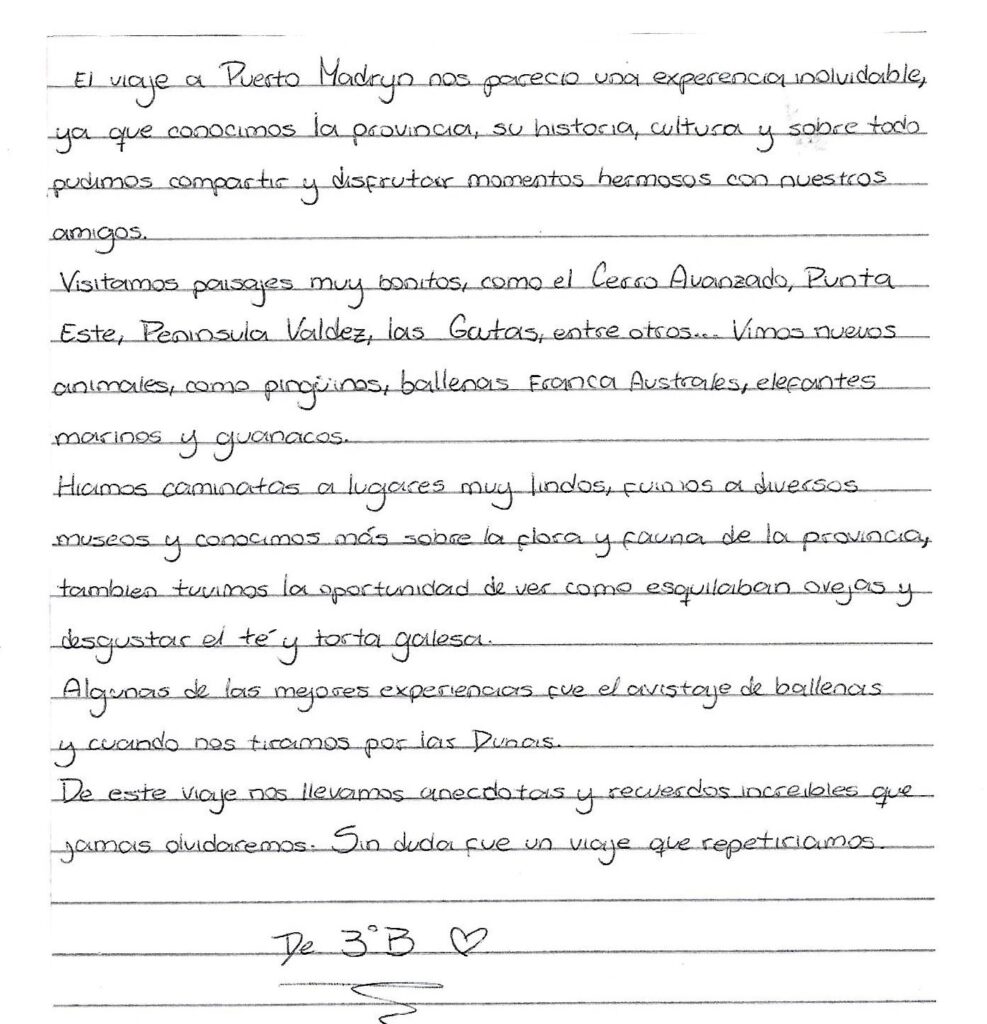 El viaje a Puerto Madryn nos parecio una experencia inolvidable,
ya que conocimos la provincia, su historia, cultura y sobre todo
pudimos compartir y disfrutar momentos hermosos con nuestros
amigos.
Visitamos paisajes muy bonitos, como el Cerro Avanzado, Punta
Este, Peninsula Valdez, las Grutas, entre otros... Vimos nuevos
animales, como pingüinos, ballenas Franca Australes, elefantes
marinos y guanacos.
Hiamos caminatas a lugares muy lindos, fuimos a diversos
museos y conocimos más sobre la flora y fauna de la provincia,
tambien tuvimos la oportunidad de ver como esquilaban ovejas y
desgustar el té y torta galesa.
Algunas de las mejores experiencias fue el avistaje de ballenas
y cuando nos tiramos por las Dunas.
De este viaje nos llevamos anecdotas y recuerdos increibles que
jamas olvidaremos. Sin duda fue un viaje que repetiriamos.
De 3°B ♡